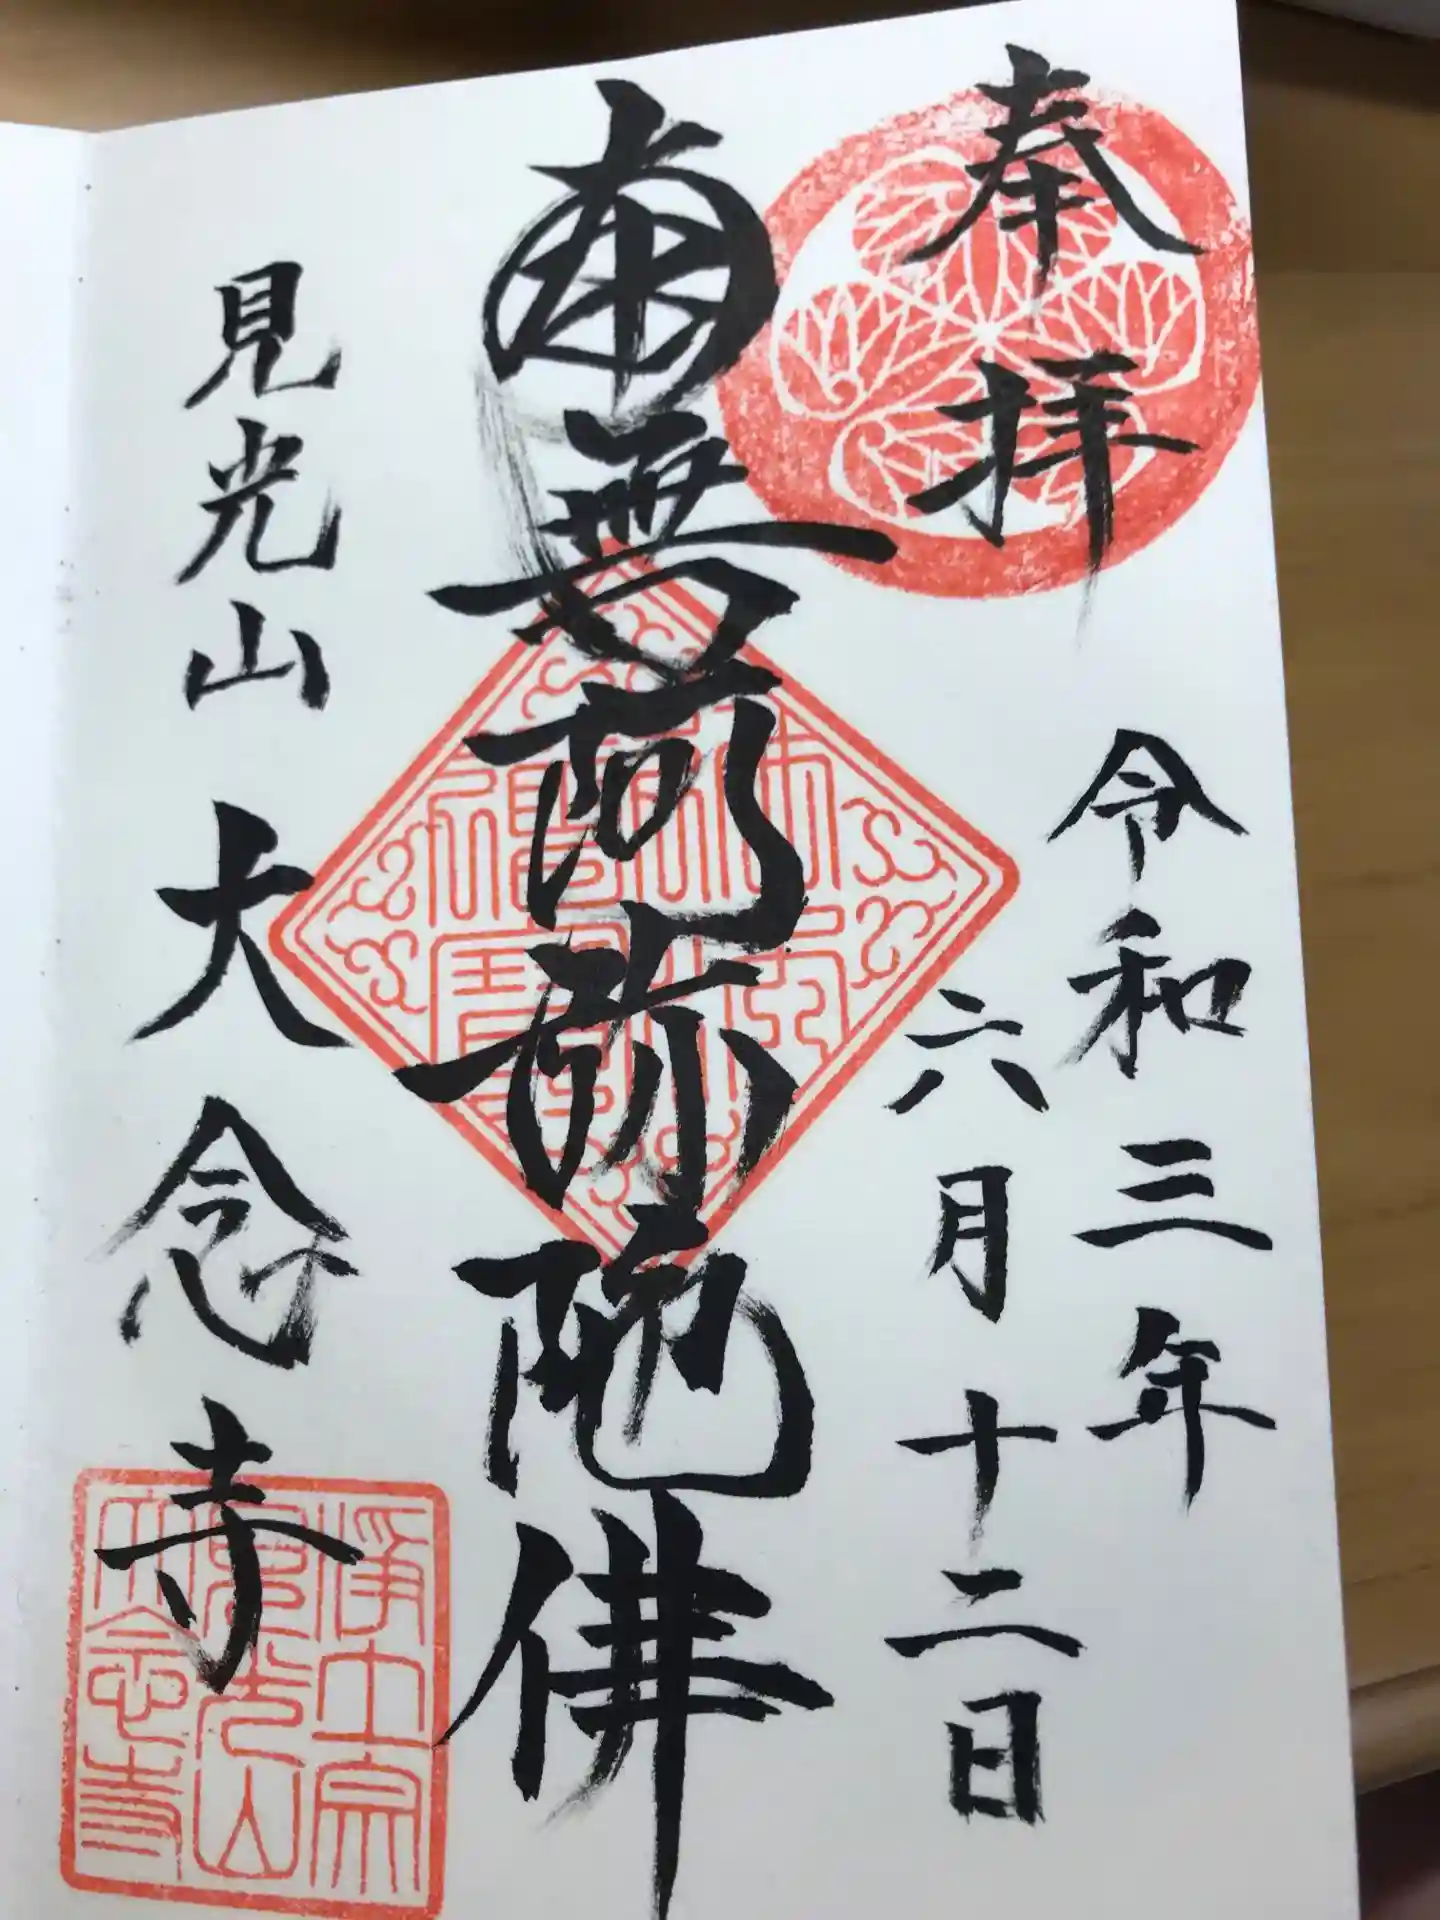 奉拝
令和三年
六月十二日
南無阿弥陀佛
見光山 大念寺
浄土宗
見光山
大念寺